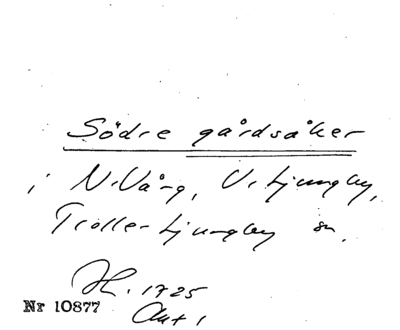 Södre gårdsåker
i N. Vång, V. Ljungby,
Trolle-Ljungby sn.
H. 1725
Akt 1
Nr 10877